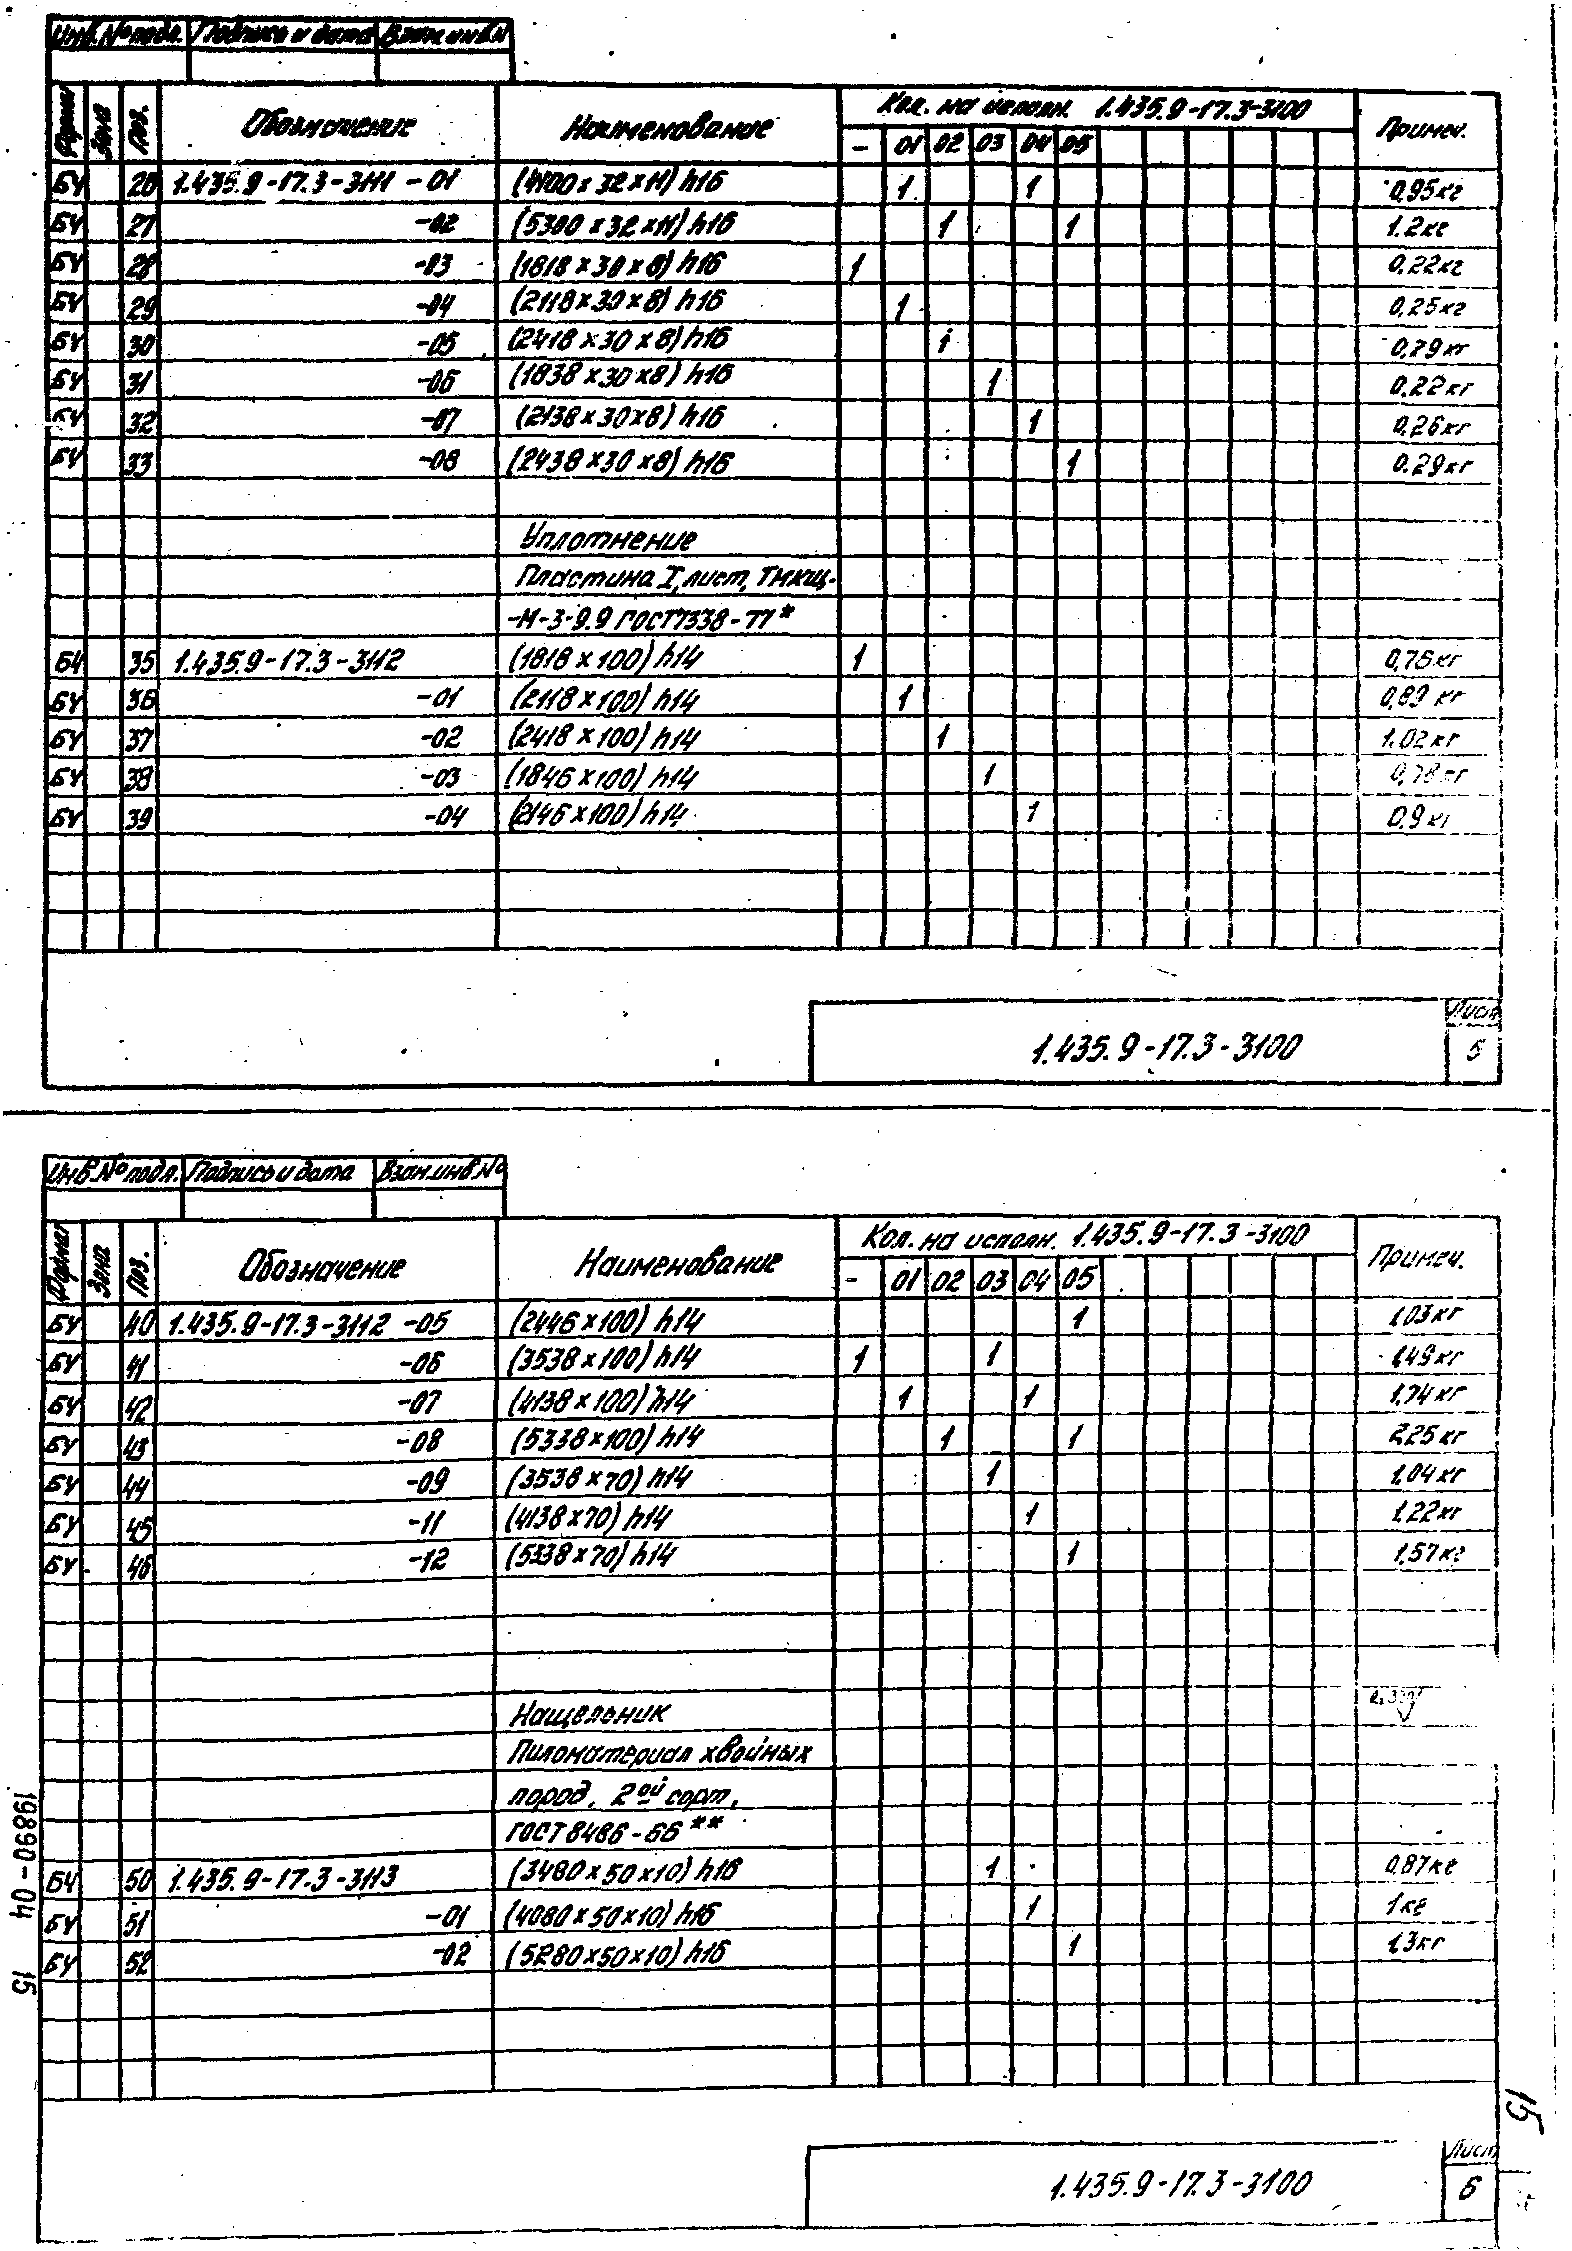 Инв.№ подл. Подпись и дата Взам.инв.№
Форма Зона Поз. Обозначение Наименование Кол. на исполн. 1.435.9-17.3-3100 Примеч.
- 01 02 03 04 05
БЧ 26 1.435.9-17.3-3111 -01 (4100×32×11) h16 1 1 0,95кг
БЧ 27 -02 (5300×32×11) h16 1 1 1.2кг
БЧ 28 -03 (1818×30×8) h16 1 0,22кг
БЧ 29 -04 (2118×30×8) h16 1 0,25кг
БЧ 30 -05 (2418×30×8) h16 1 0,29кг
БЧ 31 -06 (1838×30×8) h16 1 0.22кг
БЧ 32 -07 (2138×30×8) h16 1 0,26кг
БЧ 33 -08 (2438×30×8) h16 1 0.29кг
Уплотнение
Пластина I, лист, ТМКЩ-
-М-3-9.9 ГОСТ7338-77*
БЧ 35 1.435.9-17.3-3112 (1818×100) h14 1 0,76кг
БЧ 36 -01 (2118×100) h14 1 0,89 кг
БЧ 37 -02 (2418×100) h14 1 1.02кг
БЧ 38 -03 (1846×100) h14 1 0,78кг
БЧ 39 -04 (2146×100) h14 1 0,9кг
1.435.9-17.3-3100
Лист
5
Инв.№ подл. Подпись и дата Взам.инв.№
Форма Зона Поз. Обозначение Наименование Кол. на исполн. 1.435.9-17.3-3100 Примеч.
- 01 02 03 04 05
БЧ 40 1.435.9-17.3-3112 -05 (2446×100) h14 1 1,03кг
БЧ 41 -06 (3538×100) h14 1 1 1,49кг
БЧ 42 -07 (4138×100) h14 1 1 1,74кг
БЧ 43 -08 (5338×100) h14 1 1 2,25кг
БЧ 44 -09 (3538×70) h14 1 1.04кг
БЧ 45 -11 (4138×70) h14 1 1.22кг
БЧ 46 -12 (5338×70) h14 1 1,57кг
Нащельник
Пиломатериал хвойных
пород, 2ой сорт,
ГОСТ8486-66**
БЧ 50 1.435.9-17.3-3113 (3480×50×10) h16 1 0,87кг
БЧ 51 -01 (4080×50×10) h16 1 1кг
БЧ 52 -02 (5280×50×10) h16 1 1,3кг
19890-04 15
15
1.435.9-17.3-3100
Лист
6